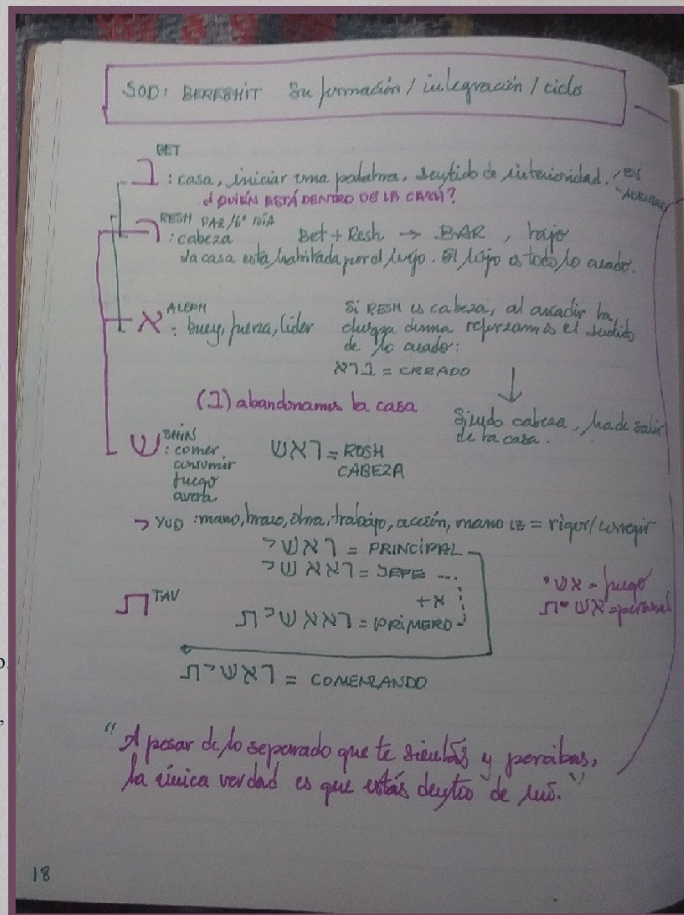 SOD: BERESHIT Su formación / integración / ciclo
BET
ב : casa, iniciar una palabra, sentido de interioridad. "EN
"ADENTRO
¿QUIÉN ESTÁ DENTRO DE LA CASA?
RESH PAZ/6º DÍA
ר : cabeza Bet + Resh → BAR, hijo
La casa está habitada por el hijo. El hijo es todo lo creado.
ALEPH
א : buey, fuerza, líder
Si RESH es cabeza, al añadir la
chispa divina reforzamos el sentido
de lo creado:
ברא = CREADO
(ב) abandonamos la casa
Siendo cabeza, ha de salir
de la casa.
SHIN
ש : comer
consumir
fuego
ראש = ROSH
CABEZA
י YUD : mano, brazo, obra, trabajo, acción, mano IZ = rigor/corregir
ראשי = PRINCIPAL
ראאשי = JEFE ...
+א
ת TAV
ראאשית = PRIMERO
אשי = fuego
אשית = personal
ראשית = COMENZANDO
"A pesar de lo separado que te sientas y percibas,
la única verdad es que estás dentro de
18